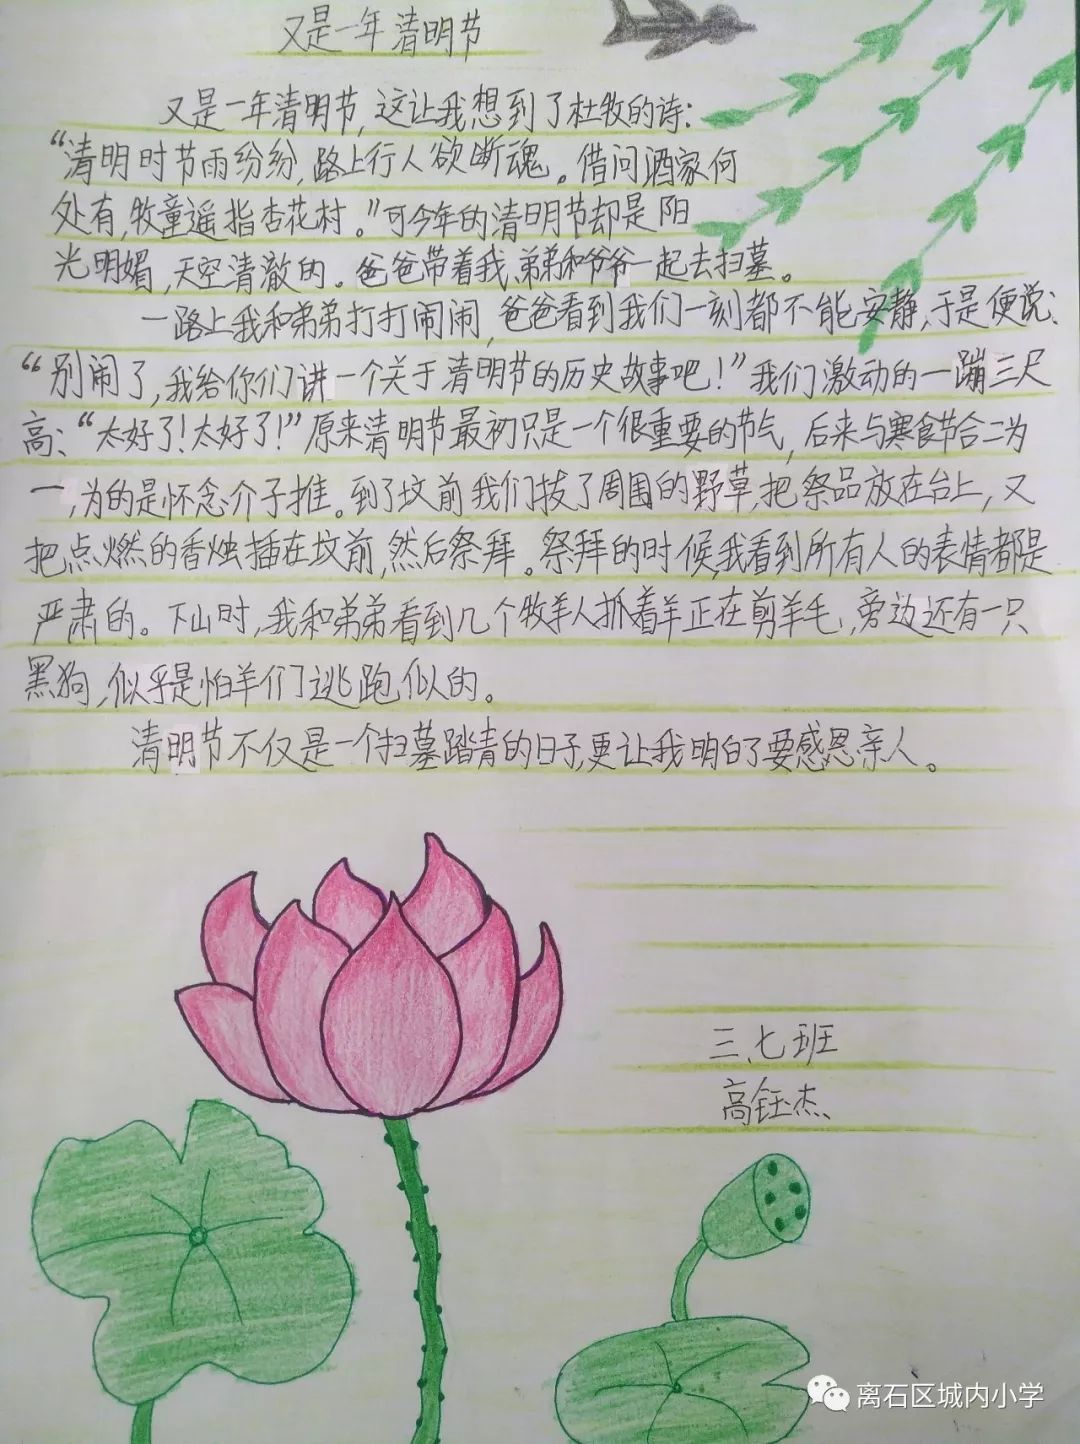 又是一年清明节
又是一年清明节,这让我想到了杜牧的诗:
“清明时节雨纷纷,路上行人欲断魂。借问酒家何
处有,牧童遥指杏花村。”可今年的清明节却是阳
光明媚,天空清澈的。爸爸带着我、弟弟和爷爷一起去扫墓。
一路上我和弟弟打打闹闹,爸爸看到我们一刻都不能安静,于是便说:
“别闹了,我给你们讲一个关于清明节的历史故事吧!”我们激动的一蹦三尺
高:“太好了!太好了!”原来清明节最初只是一个很重要的节气,后来与寒食节合二为
一,为的是怀念介子推。到了坟前我们拔了周围的野草,把祭品放在台上,又
把点燃的香烛插在坟前,然后祭拜。祭拜的时候,我看到所有人的表情都是
严肃的。下山时,我和弟弟看到几个牧羊人抓着羊正在剪羊毛,旁边还有一只
黑狗,似乎是怕羊们逃跑似的。
清明节不仅是一个扫墓踏青的日子,更让我明白了要感恩亲人。
三、七班
高钰杰
离石区城内小学